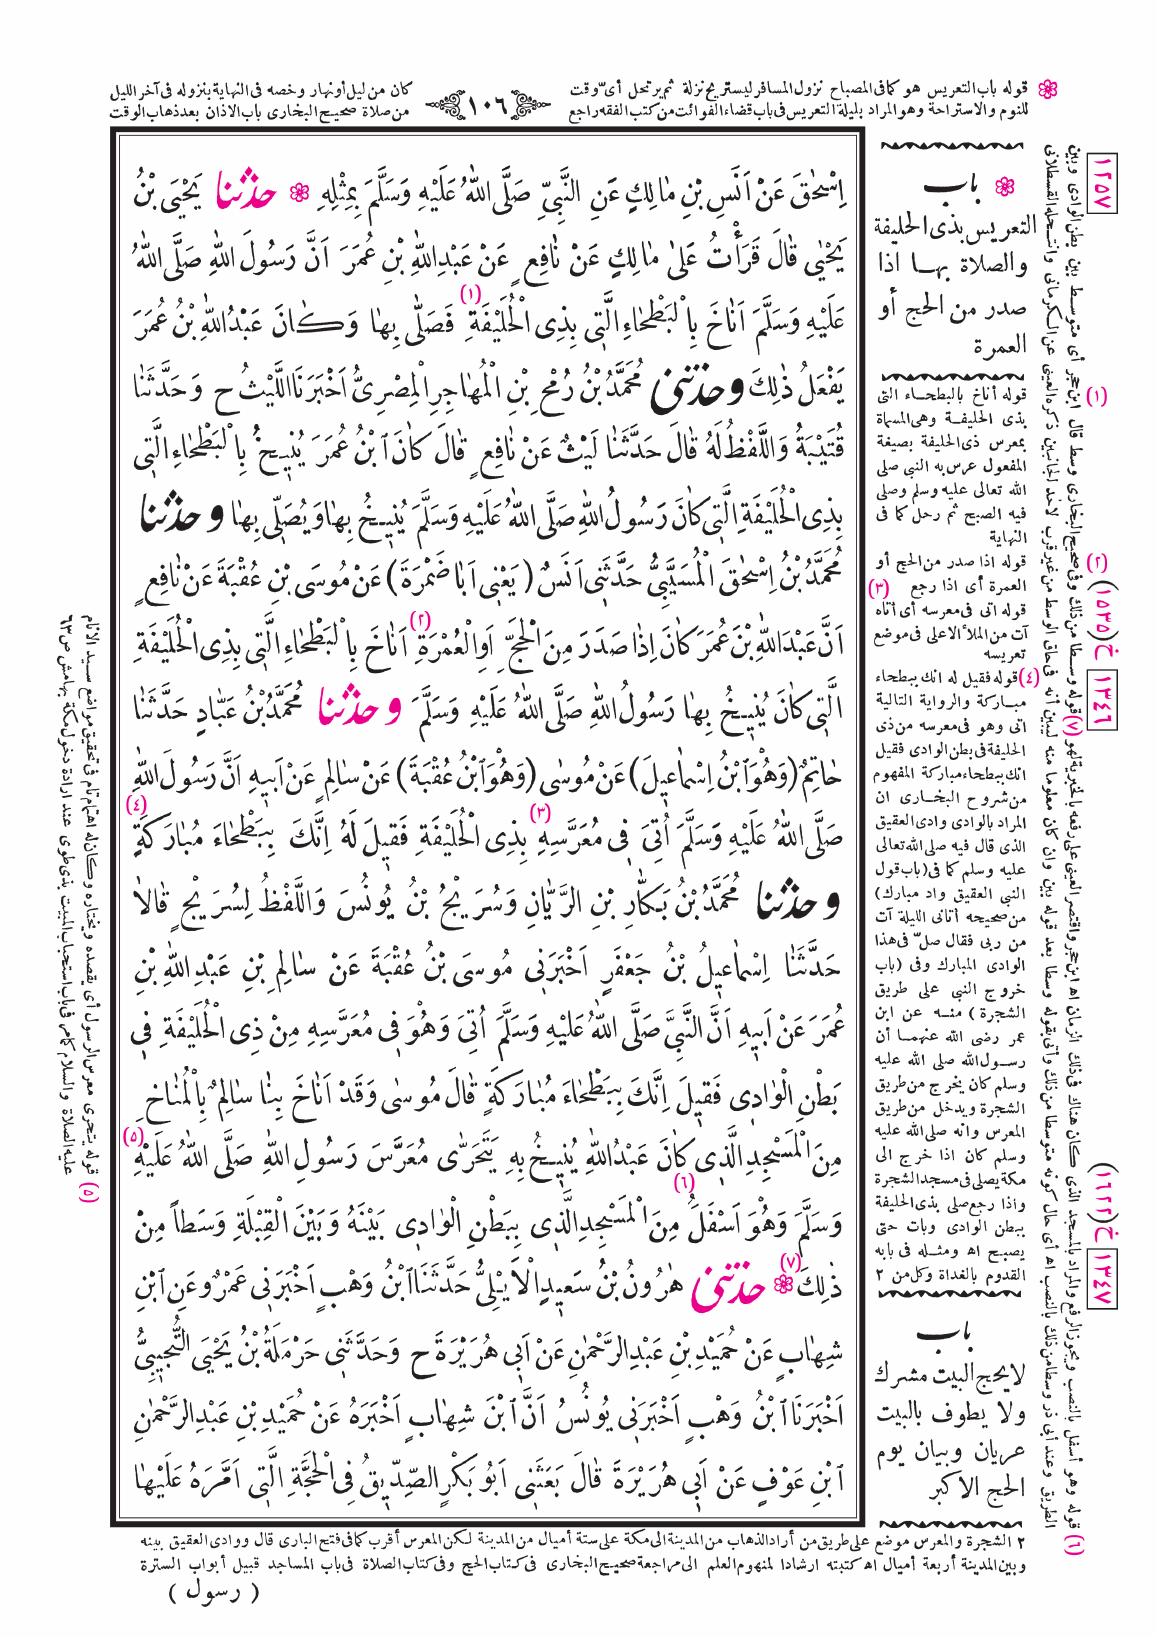 ❁ قوله باب التعريس هو كما فى المصباح نزول المسافر ليستريح نزلة ثم يرتحل أىّ وقت
كان من ليل أو نهار وخصه فى النهاية بنزوله فى آخر الليل
١٠٦
للنوم والاستراحة وهو المراد بليلة التعريس فى باب قضاء الفوائت من كتب الفقه راجع
من صلاة صحيح البخارى باب الاذان بعد ذهاب الوقت
اِسْحٰقَ عَنْ اَنَسِ بْنِ مٰالِكٍ عَنِ النَّبِيِّ صَلَّى اللّٰهُ عَلَيْهِ وَسَلَّمَ بِمِثْلِهِ ❁ حَدَّثَنَا يَحْيَى بْنُ
يَحْيٰى قٰالَ قَرَأْتُ عَلىٰ مٰالِكٍ عَنْ نٰافِعٍ عَنْ عَبْدِاللّٰهِ بْنِ عُمَرَ اَنَّ رَسُولَ اللّٰهِ صَلَّى اللّٰهُ
عَلَيْهِ وَسَلَّمَ اَنٰاخَ بِالْبَطْحٰاءِ الَّتِي بِذِى الْحُلَيْفَةِ (١) فَصَلّٰى بِهٰا وَكٰانَ عَبْدُاللّٰهِ بْنُ عُمَرَ
يَفْعَلُ ذٰلِكَ وحَدَّثَنِى مُحَمَّدُ بْنُ رُمْحِ بْنِ الْمُهٰاجِرِ الْمِصْرِىُّ اَخْبَرَنَا اللَّيْثُ ح وَحَدَّثَنٰا
قُتَيْبَةُ وَاللَّفْظُ لَهُ قٰالَ حَدَّثَنٰا لَيْثٌ عَنْ نٰافِعٍ قٰالَ كٰانَ ابْنُ عُمَرَ يُنِيخُ بِالْبَطْحٰاءِ الَّتِي
بِذِى الْحُلَيْفَةِ الَّتِي كٰانَ رَسُولُ اللّٰهِ صَلَّى اللّٰهُ عَلَيْهِ وَسَلَّمَ يُنِيخُ بِهٰا وَيُصَلِّى بِهٰا وحَدَّثَنَا
مُحَمَّدُ بْنُ اِسْحٰقَ الْمُسَيَّبِىُّ حَدَّثَنِى اَنَسٌ (يَعْنِى اَبٰا ضَمْرَةَ) عَنْ مُوسَى بْنِ عُقْبَةَ عَنْ نٰافِعٍ
اَنَّ عَبْدَاللّٰهِ بْنَ عُمَرَ كٰانَ اِذٰا صَدَرَ مِنَ الْحَجِّ اَوِ الْعُمْرَةِ (٢) اَنٰاخَ بِالْبَطْحٰاءِ الَّتِي بِذِى الْحُلَيْفَةِ
الَّتِي كٰانَ يُنِيخُ بِهٰا رَسُولُ اللّٰهِ صَلَّى اللّٰهُ عَلَيْهِ وَسَلَّمَ وحَدَّثَنَا مُحَمَّدُ بْنُ عَبّٰادٍ حَدَّثَنٰا
حٰاتِمٌ (وَهُوَ ابْنُ اِسْمٰاعِيلَ) عَنْ مُوسٰى (وَهُوَ ابْنُ عُقْبَةَ) عَنْ سٰالِمٍ عَنْ اَبِيهِ اَنَّ رَسُولَ اللّٰهِ
صَلَّى اللّٰهُ عَلَيْهِ وَسَلَّمَ اُتِىَ فِى مُعَرَّسِهِ (٣) بِذِى الْحُلَيْفَةِ فَقِيلَ لَهُ اِنَّكَ بِبَطْحٰاءَ مُبٰارَكَةٍ (٤)
وحَدَّثَنَا مُحَمَّدُ بْنُ بَكّٰارِ بْنِ الرَّيّٰانِ وَسُرَيْجُ بْنُ يُونُسَ وَاللَّفْظُ لِسُرَيْجٍ قٰالاٰ
حَدَّثَنٰا اِسْمٰاعِيلُ بْنُ جَعْفَرٍ اَخْبَرَنِى مُوسَى بْنُ عُقْبَةَ عَنْ سٰالِمِ بْنِ عَبْدِ اللّٰهِ بْنِ
عُمَرَ عَنْ اَبِيهِ اَنَّ النَّبِيَّ صَلَّى اللّٰهُ عَلَيْهِ وَسَلَّمَ اُتِىَ وَهُوَ فِى مُعَرَّسِهِ مِنْ ذِى الْحُلَيْفَةِ فِى
بَطْنِ الْوٰادِى فَقِيلَ اِنَّكَ بِبَطْحٰاءَ مُبٰارَكَةٍ قٰالَ مُوسٰى وَقَدْ اَنٰاخَ بِنٰا سٰالِمٌ بِالْمُنٰاخِ
مِنَ الْمَسْجِدِ الَّذِى كٰانَ عَبْدُ اللّٰهِ يُنِيخُ بِهِ يَتَحَرّٰى مُعَرَّسَ رَسُولِ اللّٰهِ صَلَّى اللّٰهُ عَلَيْهِ (٥)
وَسَلَّمَ وَهُوَ اَسْفَلُ (٦) مِنَ الْمَسْجِدِ الَّذِى بِبَطْنِ الْوٰادِى بَيْنَهُ وَبَيْنَ الْقِبْلَةِ وَسَطاً مِنْ
ذٰلِكَ (٧) ❁ حَدَّثَنِى هٰرُونُ بْنُ سَعِيدٍ الْاَيْلِىُّ حَدَّثَنَا ابْنُ وَهْبٍ اَخْبَرَنِى عَمْرٌو عَنِ ابْنِ
شِهٰابٍ عَنْ حُمَيْدِ بْنِ عَبْدِ الرَّحْمٰنِ عَنْ اَبِى هُرَيْرَةَ ح وَحَدَّثَنِى حَرْمَلَةُ بْنُ يَحْيَى التُّجِيبِىُّ
اَخْبَرَنَا ابْنُ وَهْبٍ اَخْبَرَنِى يُونُسُ اَنَّ ابْنَ شِهٰابٍ اَخْبَرَهُ عَنْ حُمَيْدِ بْنِ عَبْدِ الرَّحْمٰنِ
ابْنِ عَوْفٍ عَنْ اَبِى هُرَيْرَةَ قٰالَ بَعَثَنِى اَبُو بَكْرٍ الصِّدِّيقُ فِى الْحَجَّةِ الَّتِى اَمَّرَهُ عَلَيْهٰا
❁ باب
التعريس بذى الحليفة
والصلاة بها اذا
صدر من الحج أو
العمرة
(١) قوله أناخ بالبطحاء التى
بذى الحليفة وهى المسماة
بمعرس ذى الحليفة بصيغة
المفعول عرس به النبى صلى
الله تعالى عليه وسلم وصلى
فيه الصبح ثم رحل كما فى
النهاية
(٢) قوله اذا صدر من الحج أو
العمرة أى اذا رجع
(٣) قوله اتى فى معرسه أى أتاه
آت من الملأ الاعلى فى موضع
تعريسه
(٤) قوله فقيل له انك ببطحاء
مباركة والرواية التالية
اتى وهو فى معرسه من ذى
الحليفة فى بطن الوادى فقيل
انك ببطحاء مباركة المفهوم
من شروح البخارى ان
المراد بالوادى وادى العقيق
الذى قال فيه صلى الله تعالى
عليه وسلم كما فى (باب قول
النبى العقيق واد مبارك)
من صحيحه أتانى الليلة آت
من ربى فقال صلّ فى هذا
الوادى المبارك وفى (باب
خروج النبى على طريق
الشجرة) منه عن ابن
عمر رضى الله عنهما أن
رسول الله صلى الله عليه
وسلم كان يخرج من طريق
الشجرة ويدخل من طريق
المعرس وانه صلى الله عليه
وسلم كان اذا خرج الى
مكة يصلى فى مسجد الشجرة
واذا رجع صلى بذى الحليفة
ببطن الوادى وبات حتى
يصبح اه ومثله فى بابه
القدوم بالغداة وكل من ٢
باب
لا يحج البيت مشرك
ولا يطوف بالبيت
عريان وبيان يوم
الحج الاكبر
١٢٥٧
(١٥٣٥)خ ١٣٤٦
(١٦٢٢)خ ١٣٤٧
(٥) قوله يتحرى معرس الرسول أى يقصده ويختاره وكان له اهتمام تام فى تحقيق مواضع سيد الانام
عليه الصلاة والسلام كما مر فى باب استحباب المبيت بذى طوى عند ارادة دخول مكة بهامش ص ٦٣
٢ الشجرة والمعرس موضع على طريق من أراد الذهاب من المدينة الى مكة على ستة أميال من المدينة لكن المعرس أقرب كما فى فتح البارى قال ووادى العقيق بينه
وبين المدينة أربعة أميال اه كتبته ارشادا لمنهوم العلم الى مراجعة صحيح البخارى فى كتاب الحج وفى كتاب الصلاة فى باب المساجد قبيل أبواب السترة
( رسول )